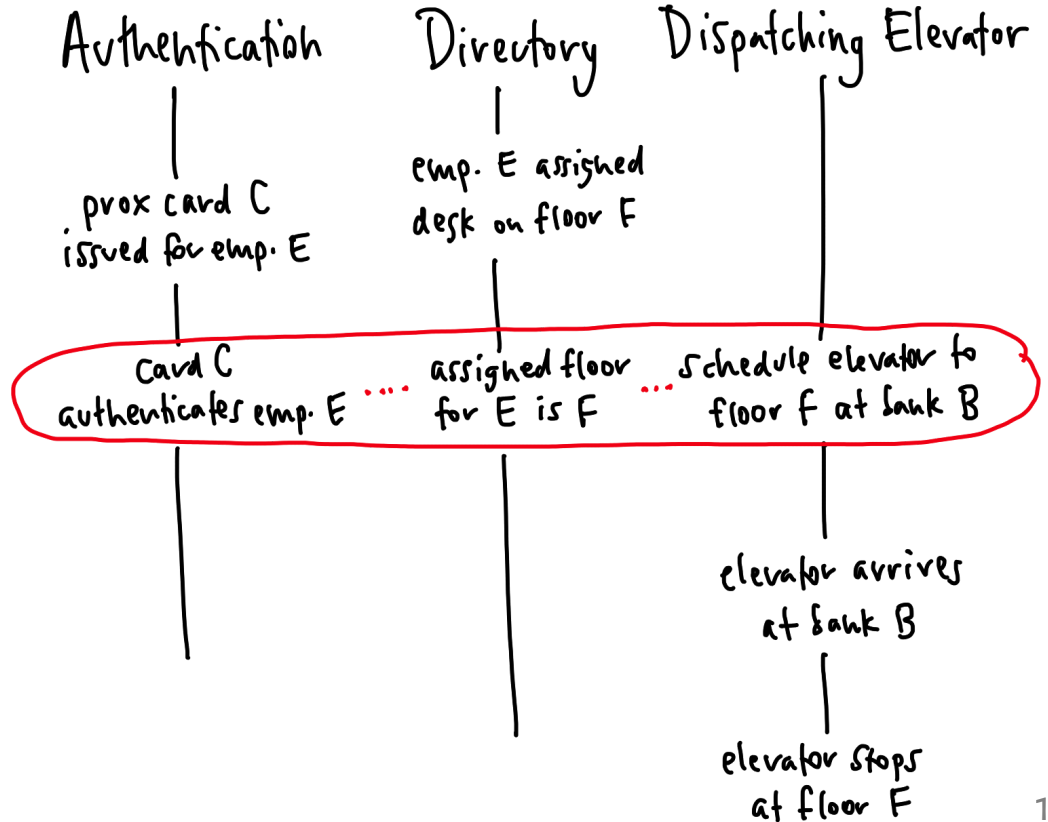 Authentication
Directory
Dispatching Elevator
prox card C
issued for emp. E
emp. E assigned
desk on floor F
card C
authenticates emp. E
....
assigned floor
for E is F
...
schedule elevator to
floor F at bank B
elevator arrives
at bank B
elevator stops
at floor F
1